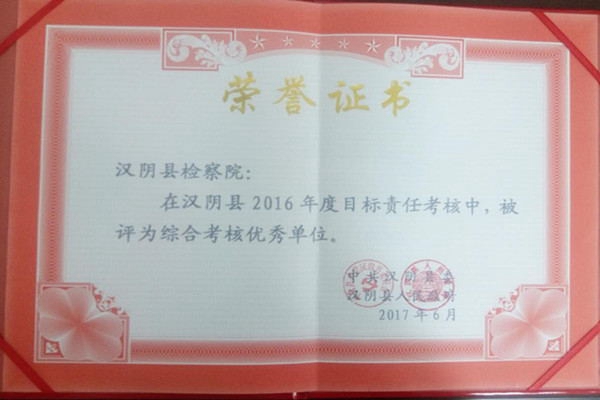 荣誉证书
汉阴县检察院：
在汉阴县2016年度目标责任考核中，被
评为综合考核优秀单位。
中共汉阴县委
汉阴县人民政府
2017年6月